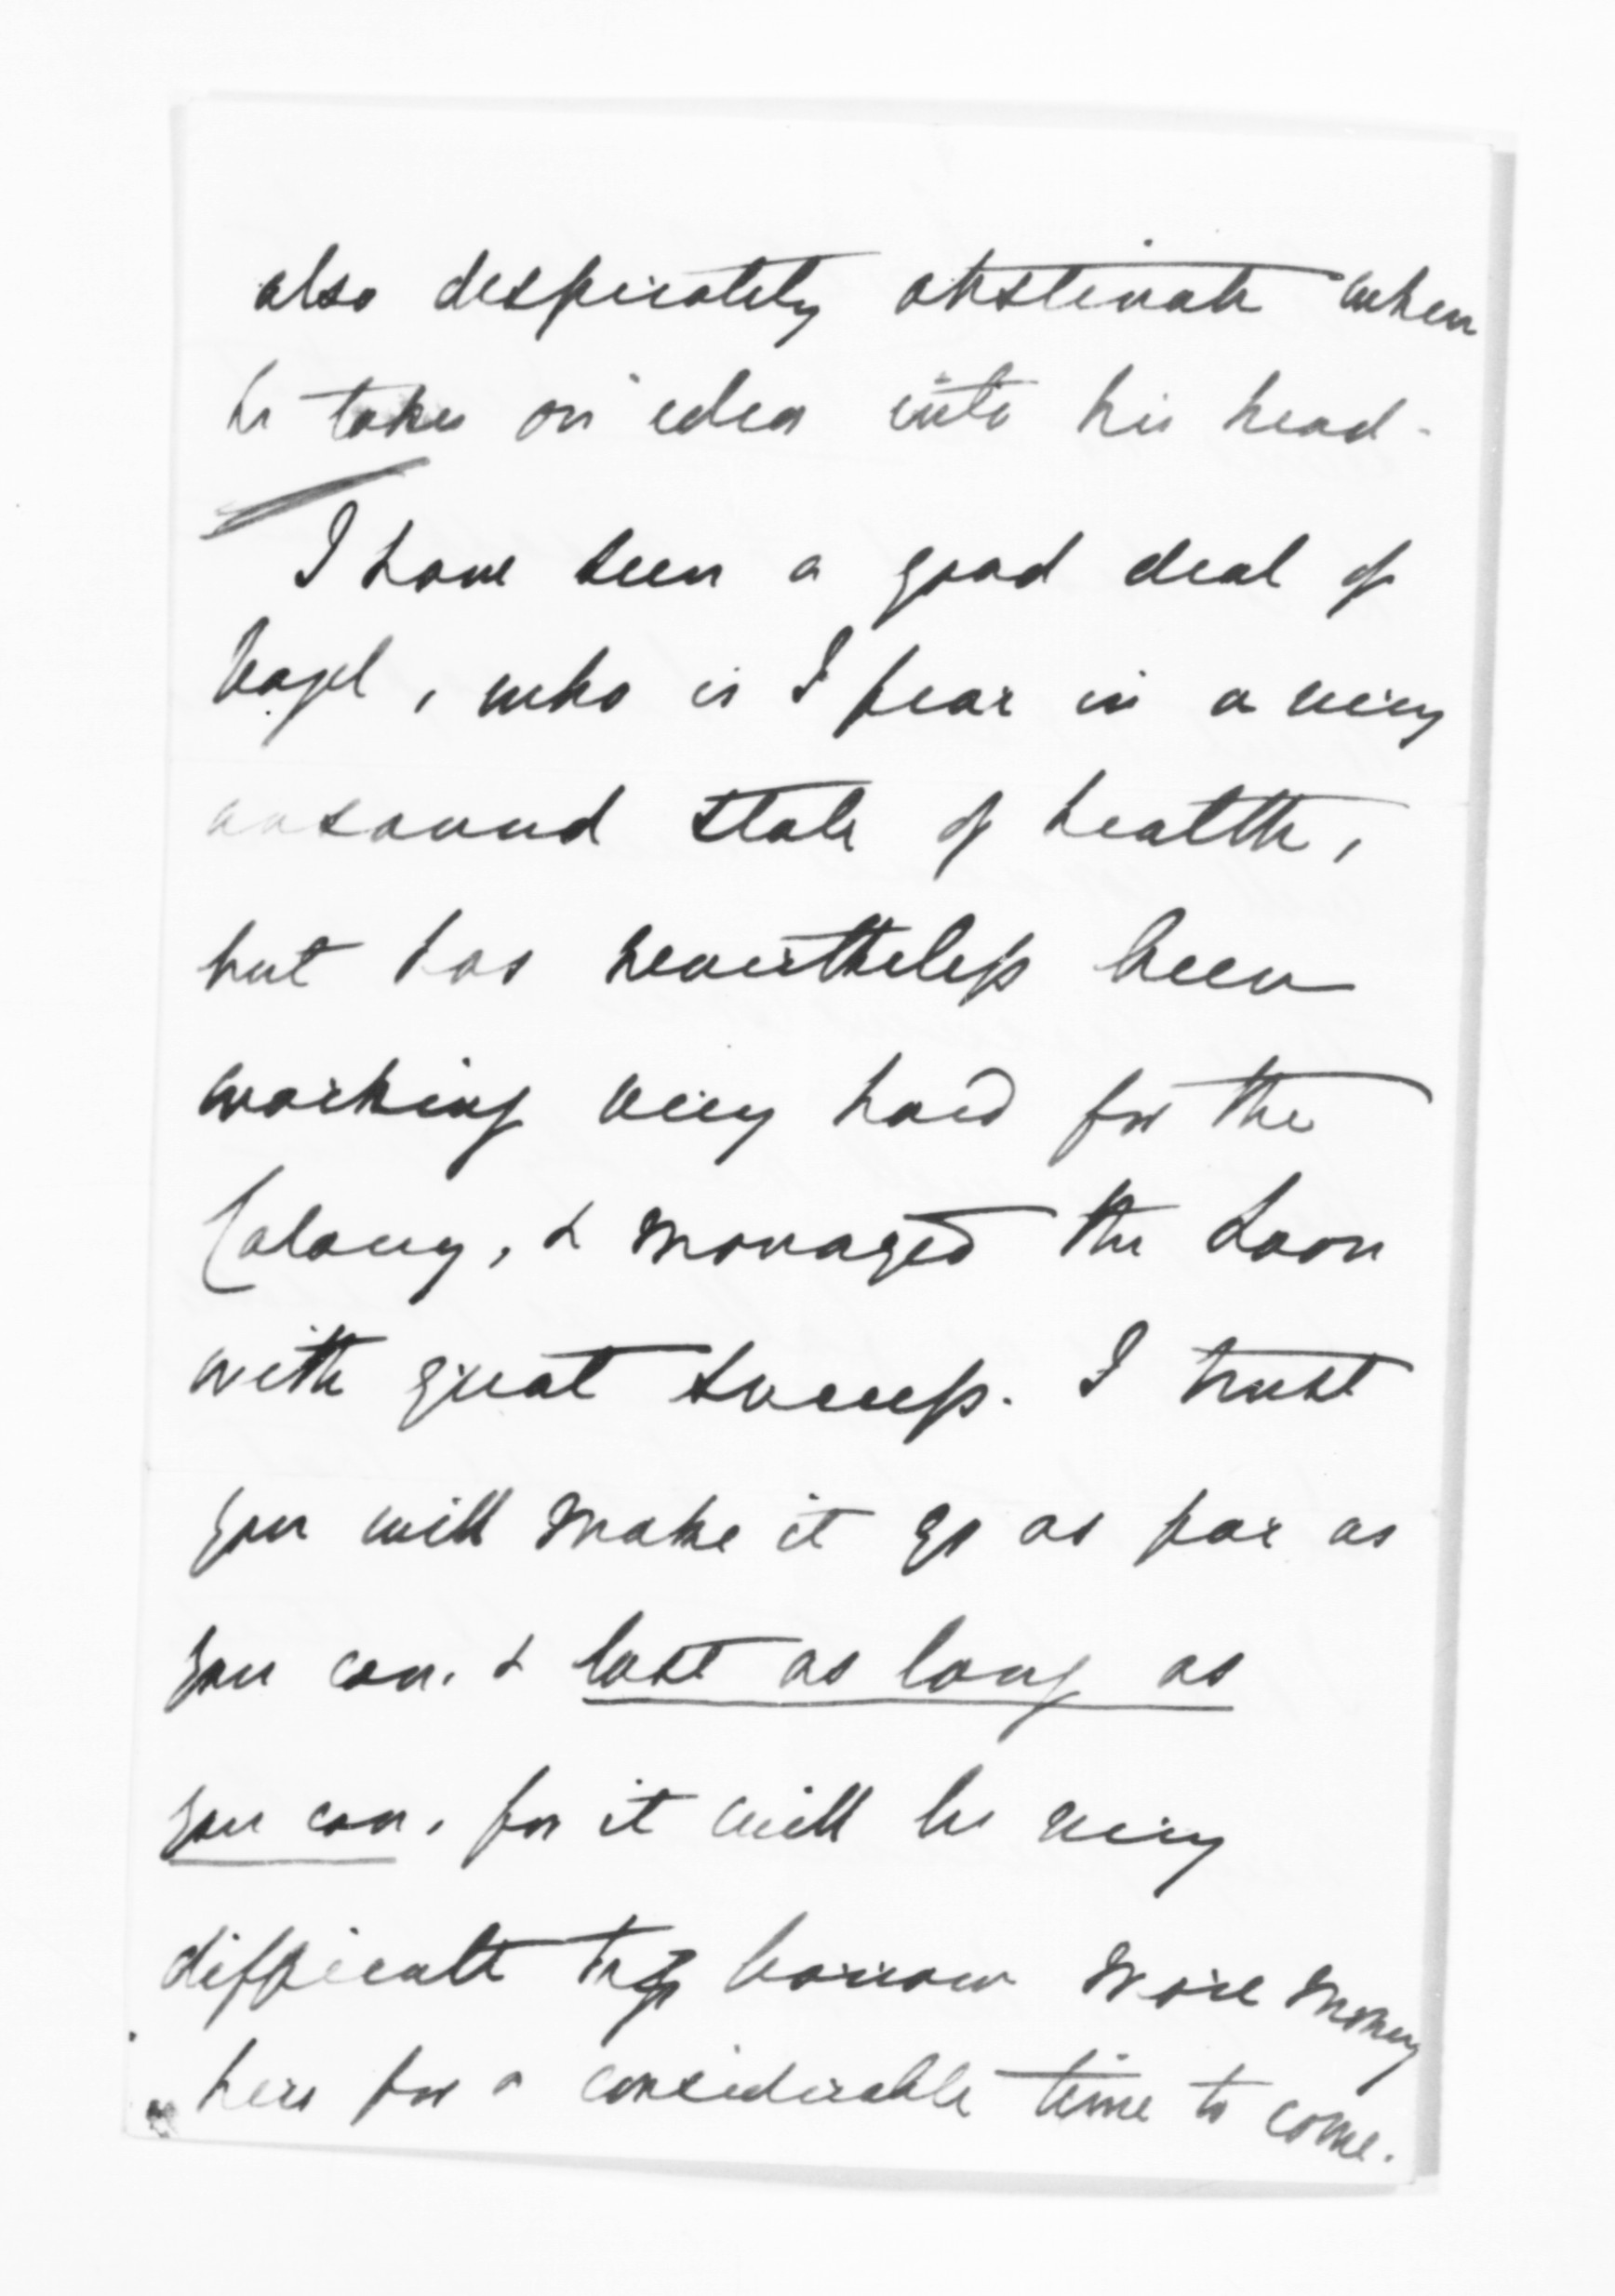 also desperately obstinate when
he takes an idea into his head -
I have seen a good deal of
Vogel, who is I fear in a very
unsound state of health,
but has nevertheless been
working very hard for the
Colony, & managed the Loan
with great success. I trust
you will make it go as far as
you can, & last as long as
you can, for it will be very
difficult to borrow more money
here for a considerable time to come.